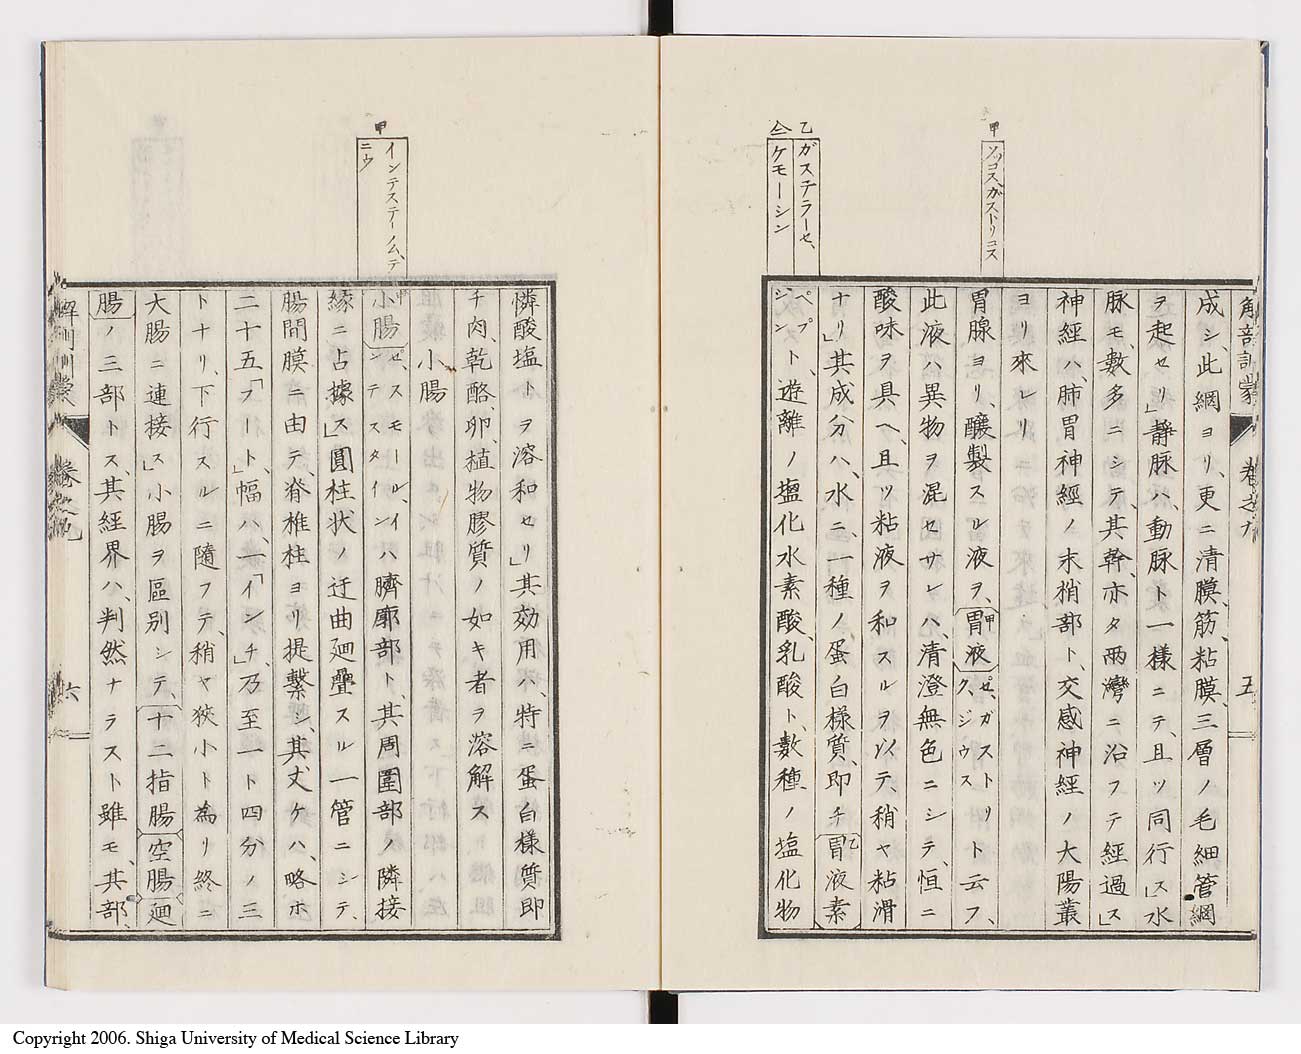 解剖訓蒙 巻之九 五
甲 ソッコス、ガストリコス
乙 ガステラーセ、
仝 ケモーシン
成シ、此網ヨリ、更ニ清膜、筋、粘膜、三層ノ毛細管網
ヲ起セリ」静脉ハ、動脉ト一様ニテ、且ツ同行」ス水
脉モ、數多ニシテ、其幹、亦タ兩灣ニ沿フテ經過」ス
神經ハ、肺胃神經ノ末梢部ト、交感神經ノ大陽叢
ヨリ來レリ
胃腺ヨリ、釀製スル液ヲ、甲胃液ゼ、ガストリク、ジウスト云フ、
此液ハ異物ヲ混セサレハ、清澄無色ニシテ、恒ニ
酸味ヲ具ヘ、且ツ粘液ヲ和スルヲ以テ、稍ヤ粘滑
ナリ」其成分ハ、水ニ、一種ノ蛋白様質、即チ乙胃液素
ペプシント、遊離ノ塩化水素酸、乳酸ト、數種ノ塩化物
甲 インテスティノム、テニウ
燐酸塩トヲ溶和セリ」其効用、特ニ蛋白様質即
チ肉、乾酪、卵、植物膠質ノ如キ者ヲ溶解ス
小腸
甲小腸ゼ、スモール、インテスタインハ臍廓部ト、其周圍部ノ隣接
縁ニ占據ス」圓柱状ノ迂曲廻疊スル一管ニシテ、
腸間膜ニ由テ、脊椎柱ヨリ提繋シ、其丈ケハ、略ホ
二十五「フート」、幅ハ、一「インチ」、乃至一ト四分ノ三
トナリ、下行スルニ隨フテ、稍ヤ狹小ト為リ終ニ
大腸ニ連接ス」小腸ヲ區別シテ、十二指腸空腸廻
腸ノ三部トス、其經界ハ、判然ナラスト雖モ、其部、
六